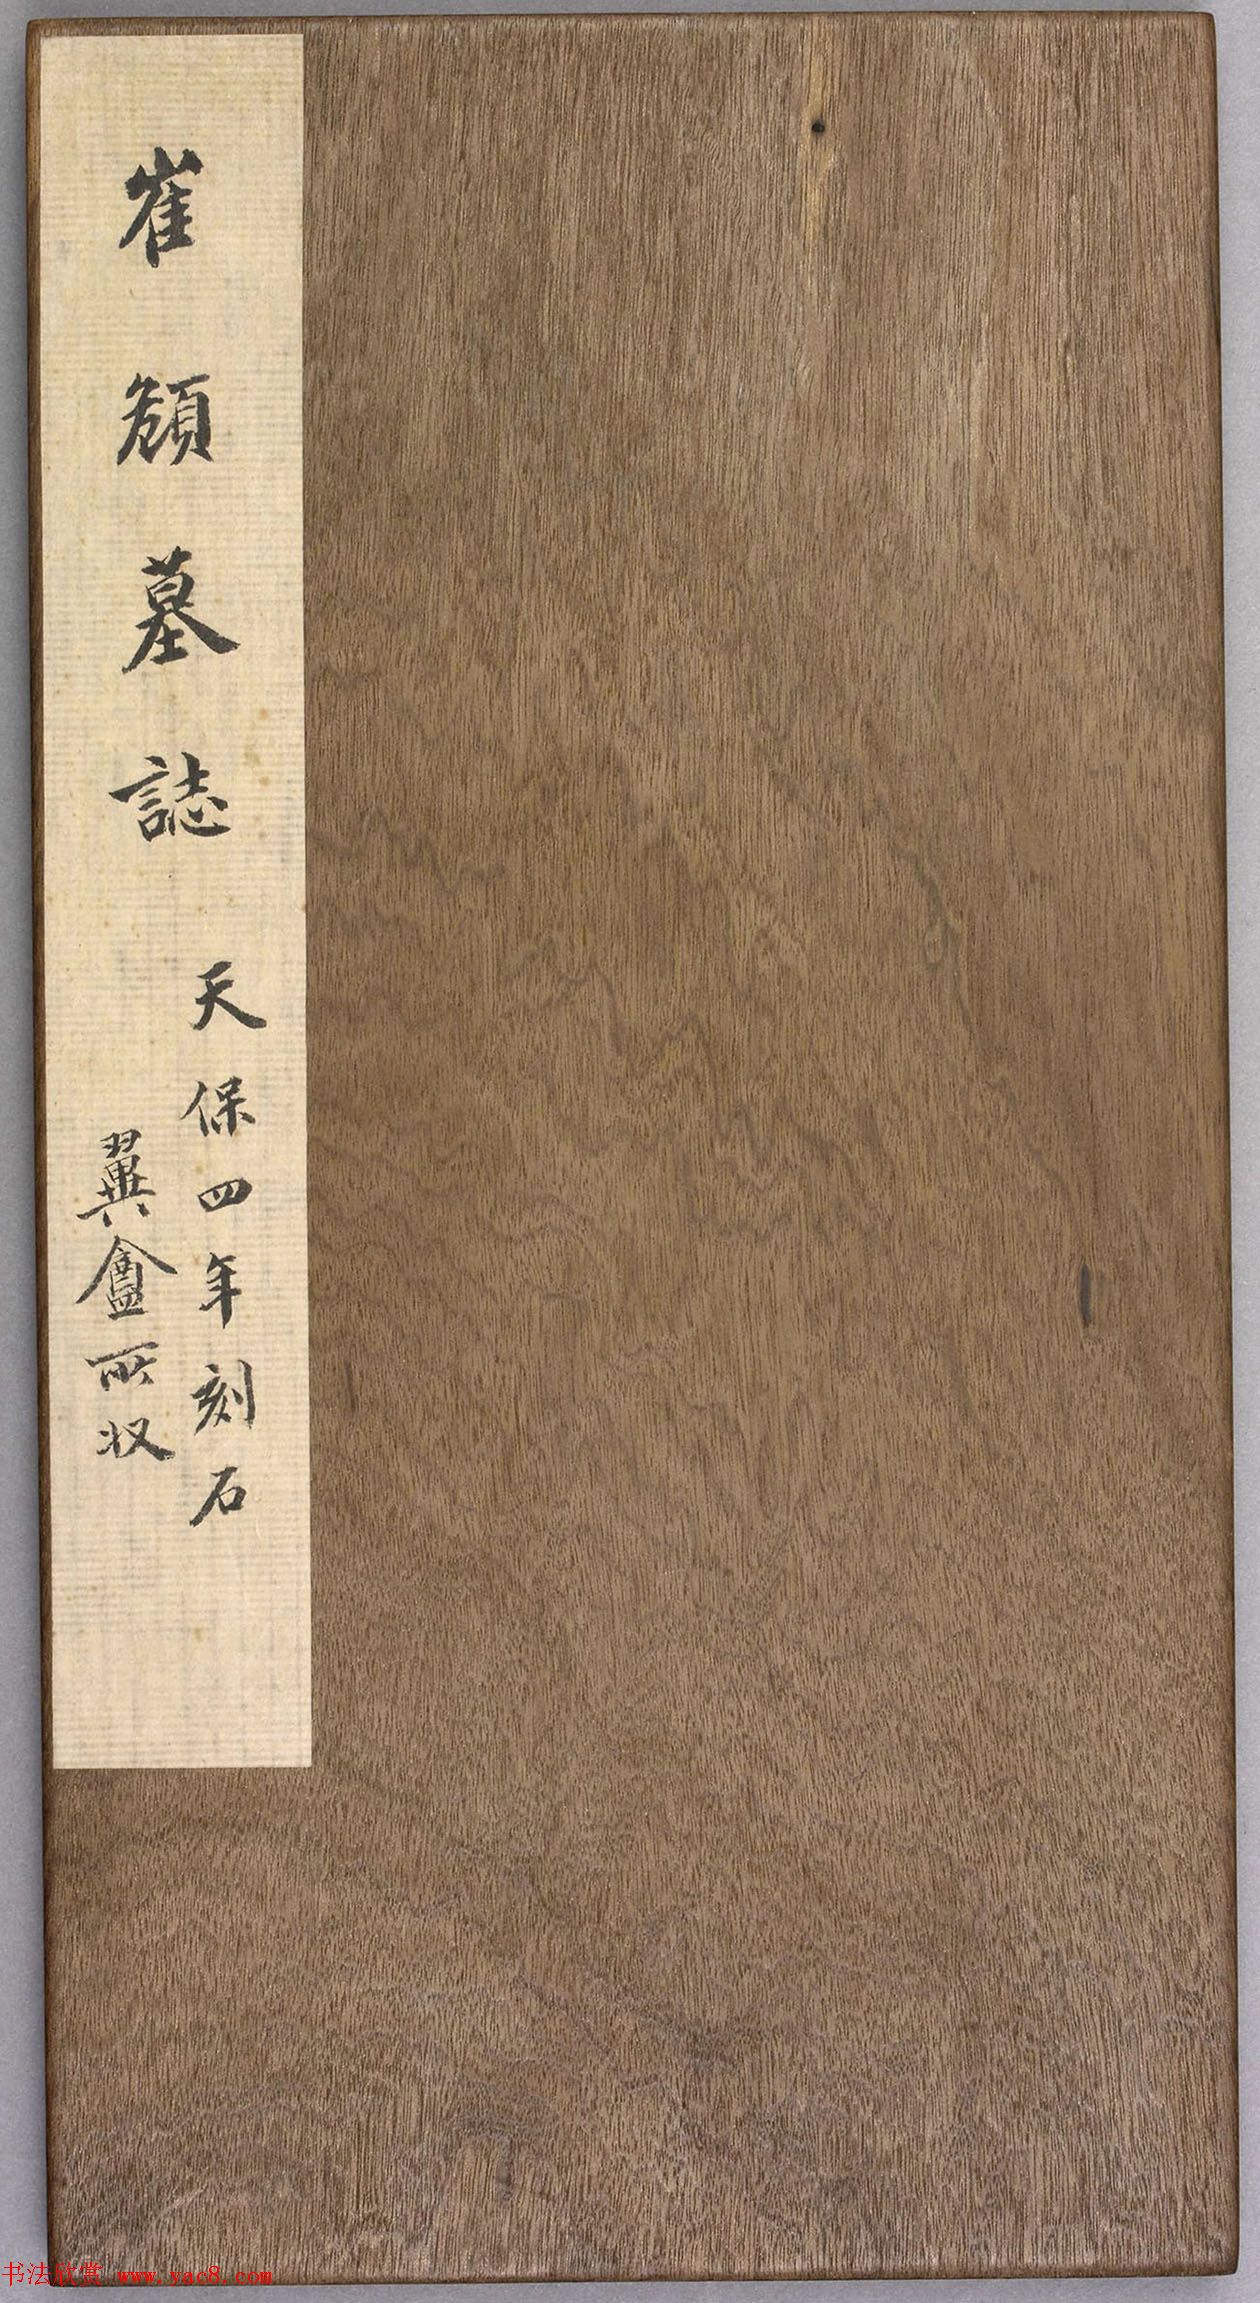 崔頠墓誌
天保四年刻石
翼盦所収
书法欣赏 www.yac8.com